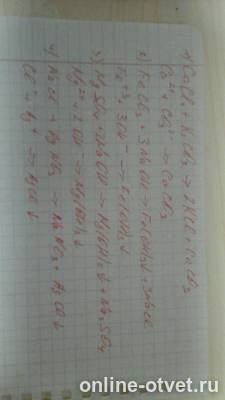 1) CaCl₂ + K₂CO₃ → 2KCl + CaCO₃
Ca²⁺ + CO₃²⁻ → CaCO₃
2) FeCl₃ + 3NaOH → Fe(OH)₃↓ + 3NaCl
Fe⁺³ + 3OH⁻ → Fe(OH)₃↓
3) MgSO₄ + 2NaOH → Mg(OH)₂↓ + Na₂SO₄
Mg²⁺ + 2OH⁻ → Mg(OH)₂↓
4) NaCl + AgNO₃ → NaNO₃ + AgCl↓
Cl⁻ + Ag⁺ → AgCl↓
online-otvet.ru